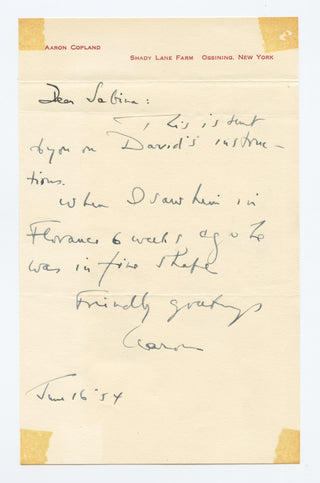 AARON COPLAND
SHADY LANE FARM OSSINING, NEW YORK
Dear Sabina:
This is sent
to you on David's instruc-
tions.
When I saw him in
Florence 6 weeks ago he
was in fine shape
Friendly greetings
Aaron
June 16 '54